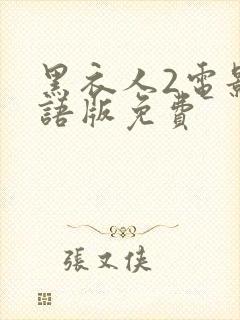 黑衣人2電影
語版免費
張又俠